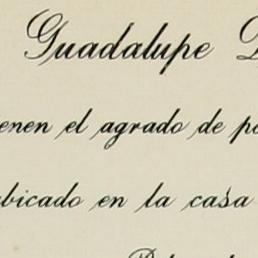 Guadalupe
enen el agrado de po
ubicado en la casa